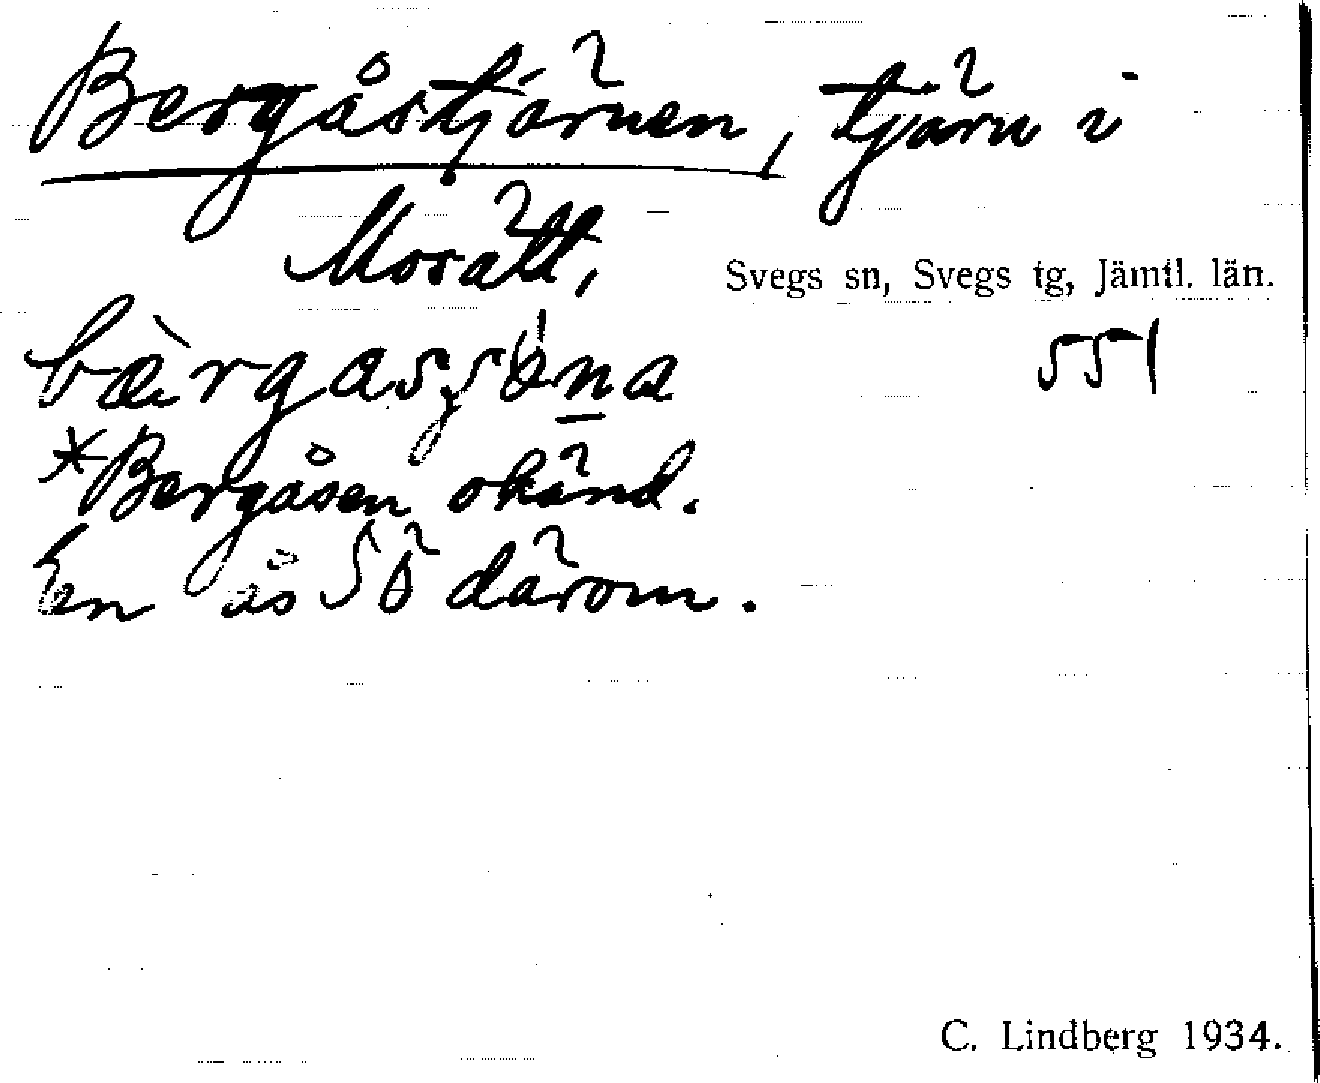 Bergåstjärnen, tjärn i
Morätt,
Svegs sn, Svegs tg, Jämtl. län.
551
*Bergåsen okänd.
En ås SÖ därom.
C. Lindberg 1934.